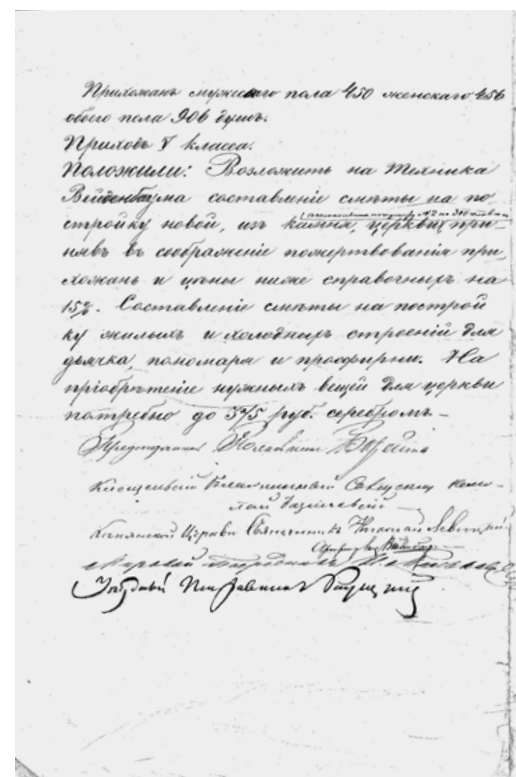 Прихожанъ мужескаго пола 450 женскаго 456
обоего пола 906 душъ.
Приходъ V класса.
Положили: Возложить на Техника
Вейденбаума составленіе смѣты на по
стройку новой, изъ камня, церкви, при-
нявъ въ соображеніе пожертвованія при-
хожанъ и цѣны ниже справочныхъ на
15%. Составленіе смѣты на построй
ку жилыхъ и холодныхъ строеній для
дьячка, пономаря и просфирни. На
пріобрѣтеніе нужныхъ вещей для церкви
потребно до 375 руб. серебромъ.
Полковникъ
Благочинный Священникъ
Церкви Священникъ Николай Левицкій
Мировой Посредникъ
Уѣздный